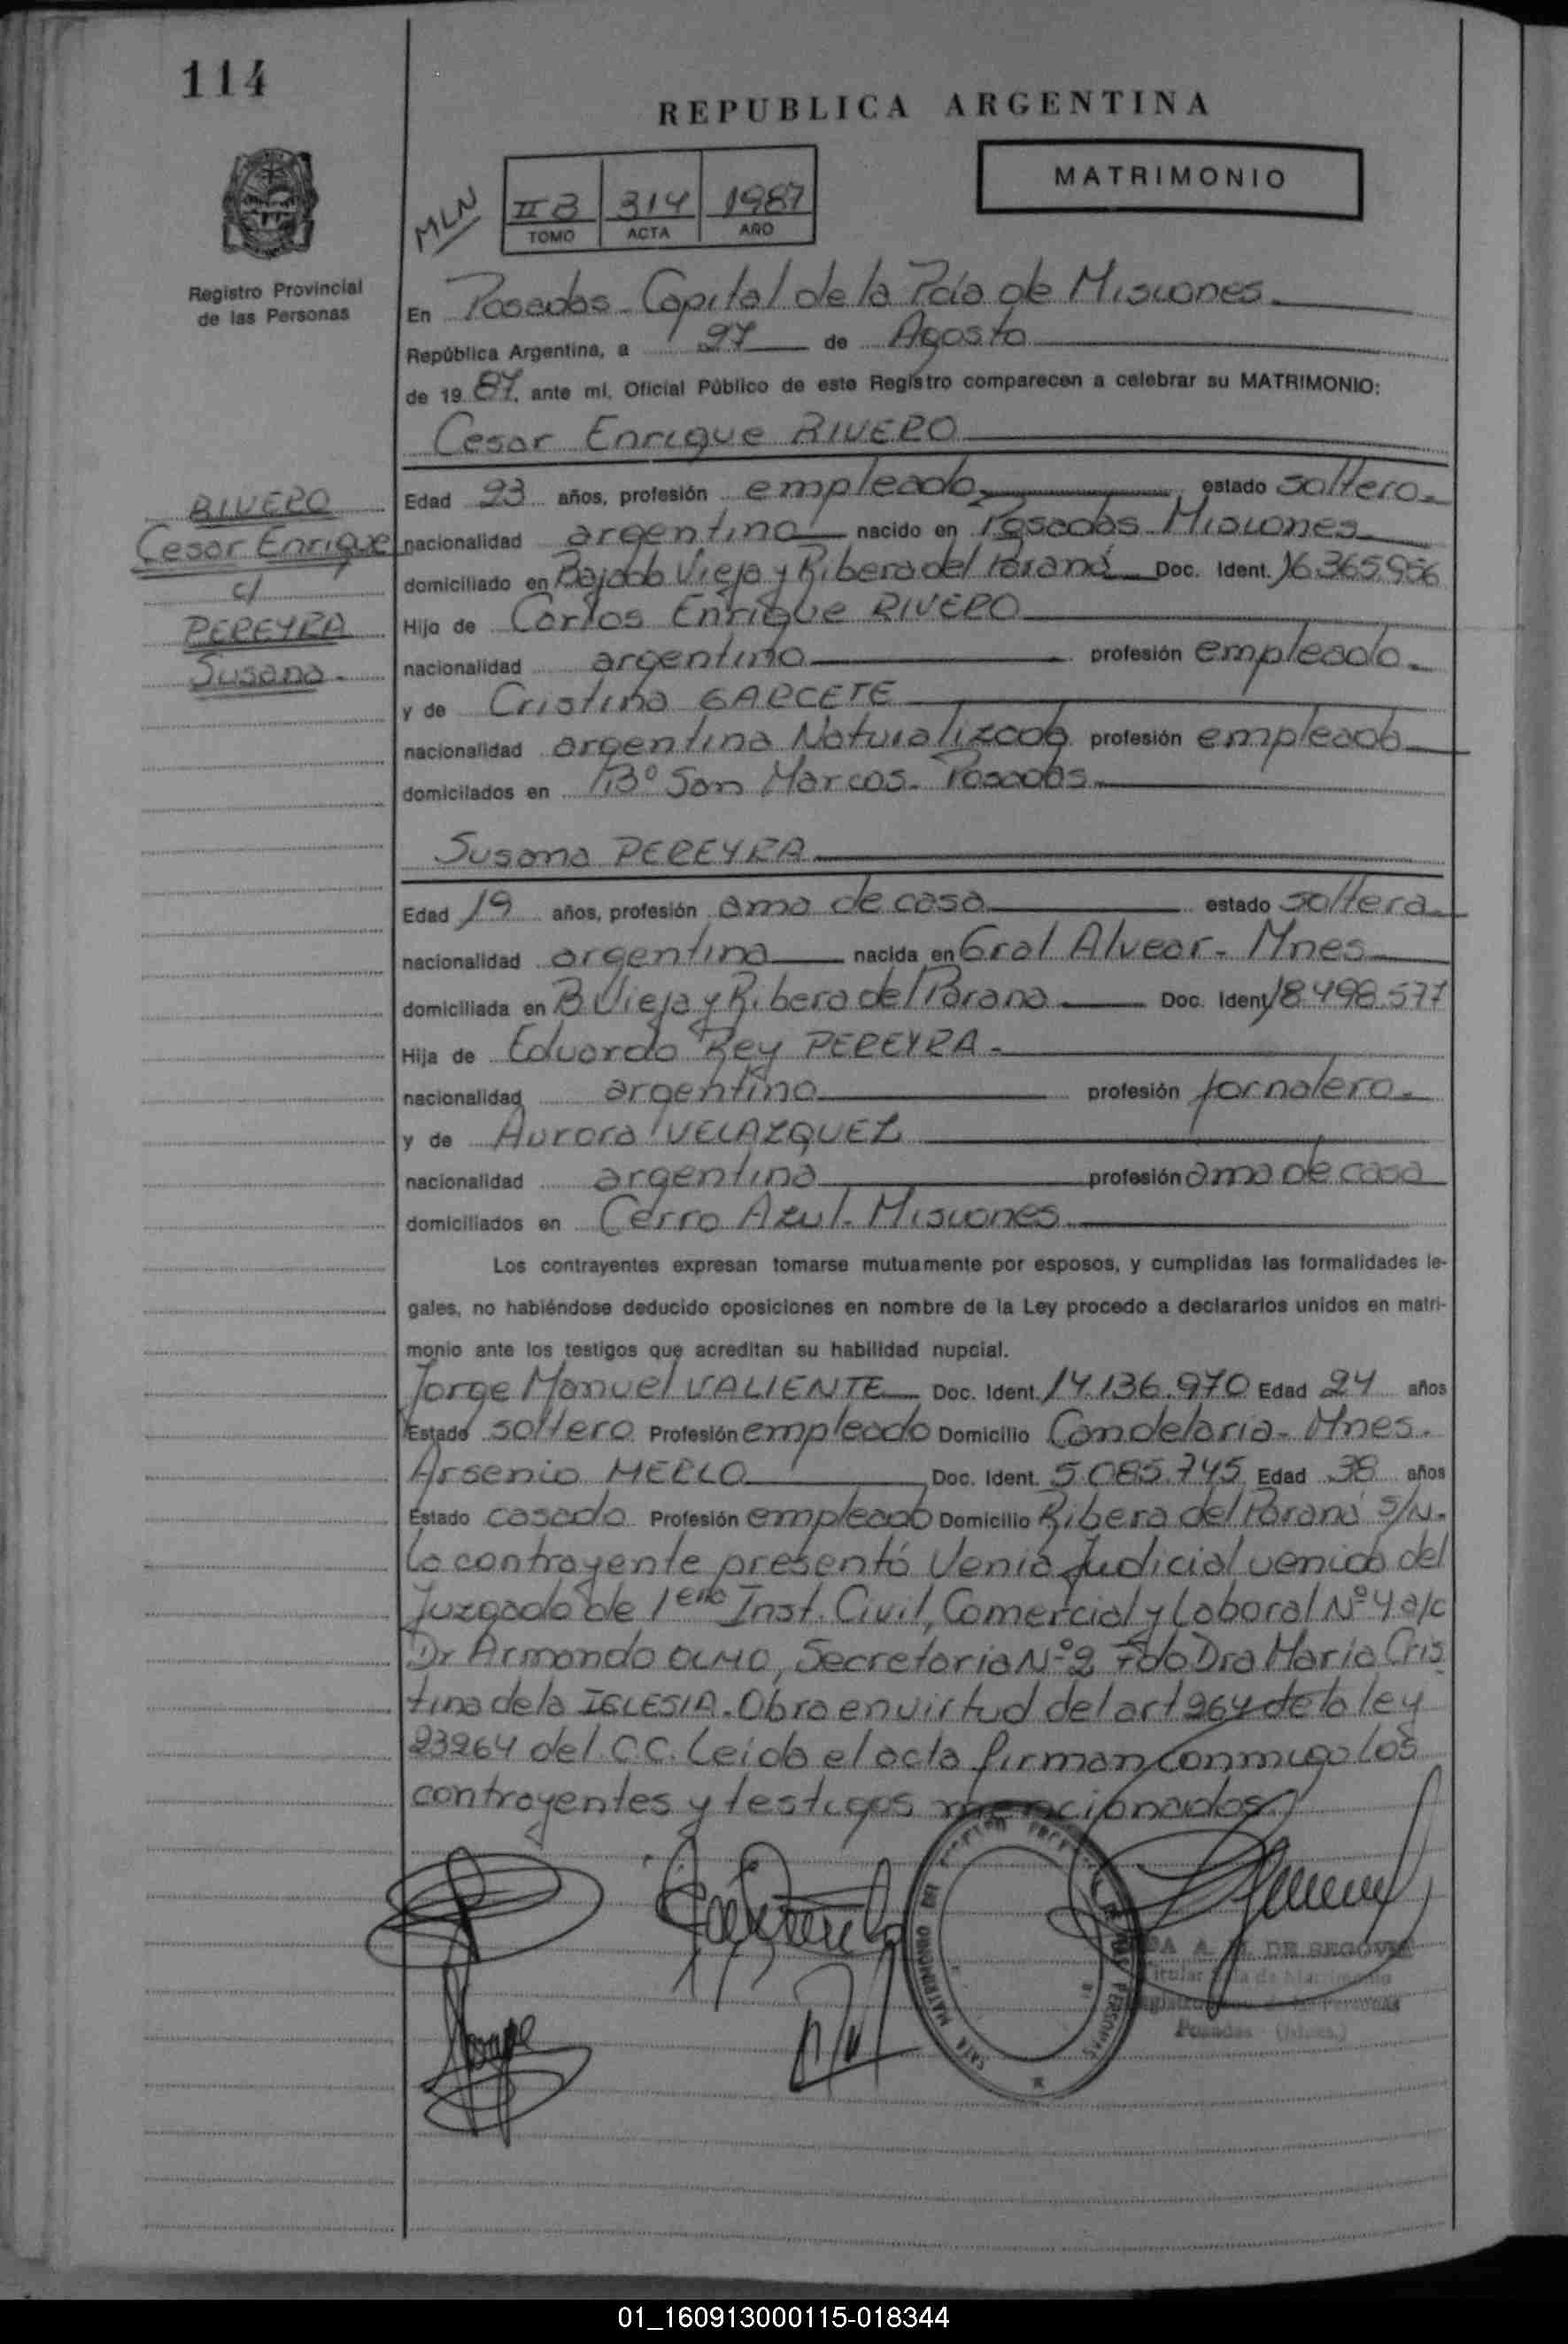 114
REPUBLICA ARGENTINA
MATRIMONIO
MLN
II B 314 1987
TOMO ACTA AÑO
Registro Provincial
de las Personas
En Posadas - Capital de la Pcia de Misiones
República Argentina, a 27 de Agosto
de 19 87, ante mí, Oficial Público de este Registro comparecen a celebrar su MATRIMONIO:
Cesar Enrique RIVERO
RIVERO
Cesar Enrique
c/
PEREYRA
Susana.-
Edad 23 años, profesión empleado estado soltero.-
nacionalidad argentina nacido en Posadas Misiones
domiciliado en Bajada Vieja y Ribera del Paraná Doc. Ident. 16.365.956
Hijo de Carlos Enrique RIVERO
nacionalidad argentino profesión empleado.-
y de Cristina GARCETE
nacionalidad argentina Naturalizada profesión empleada
domicilados en Bº San Marcos - Posadas
Susana PEREYRA
Edad 19 años, profesión ama de casa estado soltera.-
nacionalidad argentina nacida en Gral Alvear - Mnes
domiciliada en B. Vieja y Ribera del Parana Doc. Ident. 18.498.577
Hija de Eduardo Rey PEREYRA.-
nacionalidad argentino profesión jornalero.-
y de Aurora VELAZQUEZ
nacionalidad argentina profesión ama de casa
domiciliados en Cerro Azul - Misiones
Los contrayentes expresan tomarse mutuamente por esposos, y cumplidas las formalidades le-
gales, no habiéndose deducido oposiciones en nombre de la Ley procedo a declararlos unidos en matri-
monio ante los testigos que acreditan su habilidad nupcial.
Jorge Manuel VALIENTE Doc. Ident. 14.136.970 Edad 24 años
Estado soltero Profesión empleado Domicilio Candelaria - Mnes.
Arsenio MERLO Doc. Ident. 5.085.745 Edad 38 años
Estado casado Profesión empleado Domicilio Ribera del Paraná S/N.
La contrayente presentó Venia Judicial venida del
Juzgado de 1era Inst. Civil, Comercial y Laboral Nº 4 a/c
Dr Armando OLMO, Secretaria Nº 2 Fdo Dra Maria Cris
tina de la IGLESIA. Obra en virtud del art 264 de la ley
23264 del C.C. Leida el acta firman conmigo los
contrayentes y testigos mencionados
A. DE SEGOVIA
Titular Sala de Matrimonio
Posadas (Mnes.)
SALA MATRIMONIO
PERSONAS
01_160913000115-018344